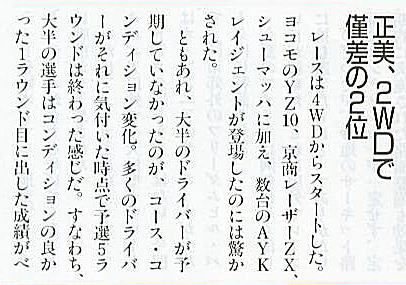 正美、2WDで
僅差の2位
レースは4WDからスタートした。
ヨコモのYZ10、京商レーザーZX、
シューマッハに加え、数台のAYK
レイジェントが登場したのには驚か
された。
ともあれ、大半のドライバーが予
期していなかったのが、コース・コ
ンディション変化。多くのドライバ
ーがそれに気付いた時点で予選5ラ
ウンドは終わった感じだ。すなわち、
大半の選手はコンディションの良か
った1ラウンド目に出した成績がベ